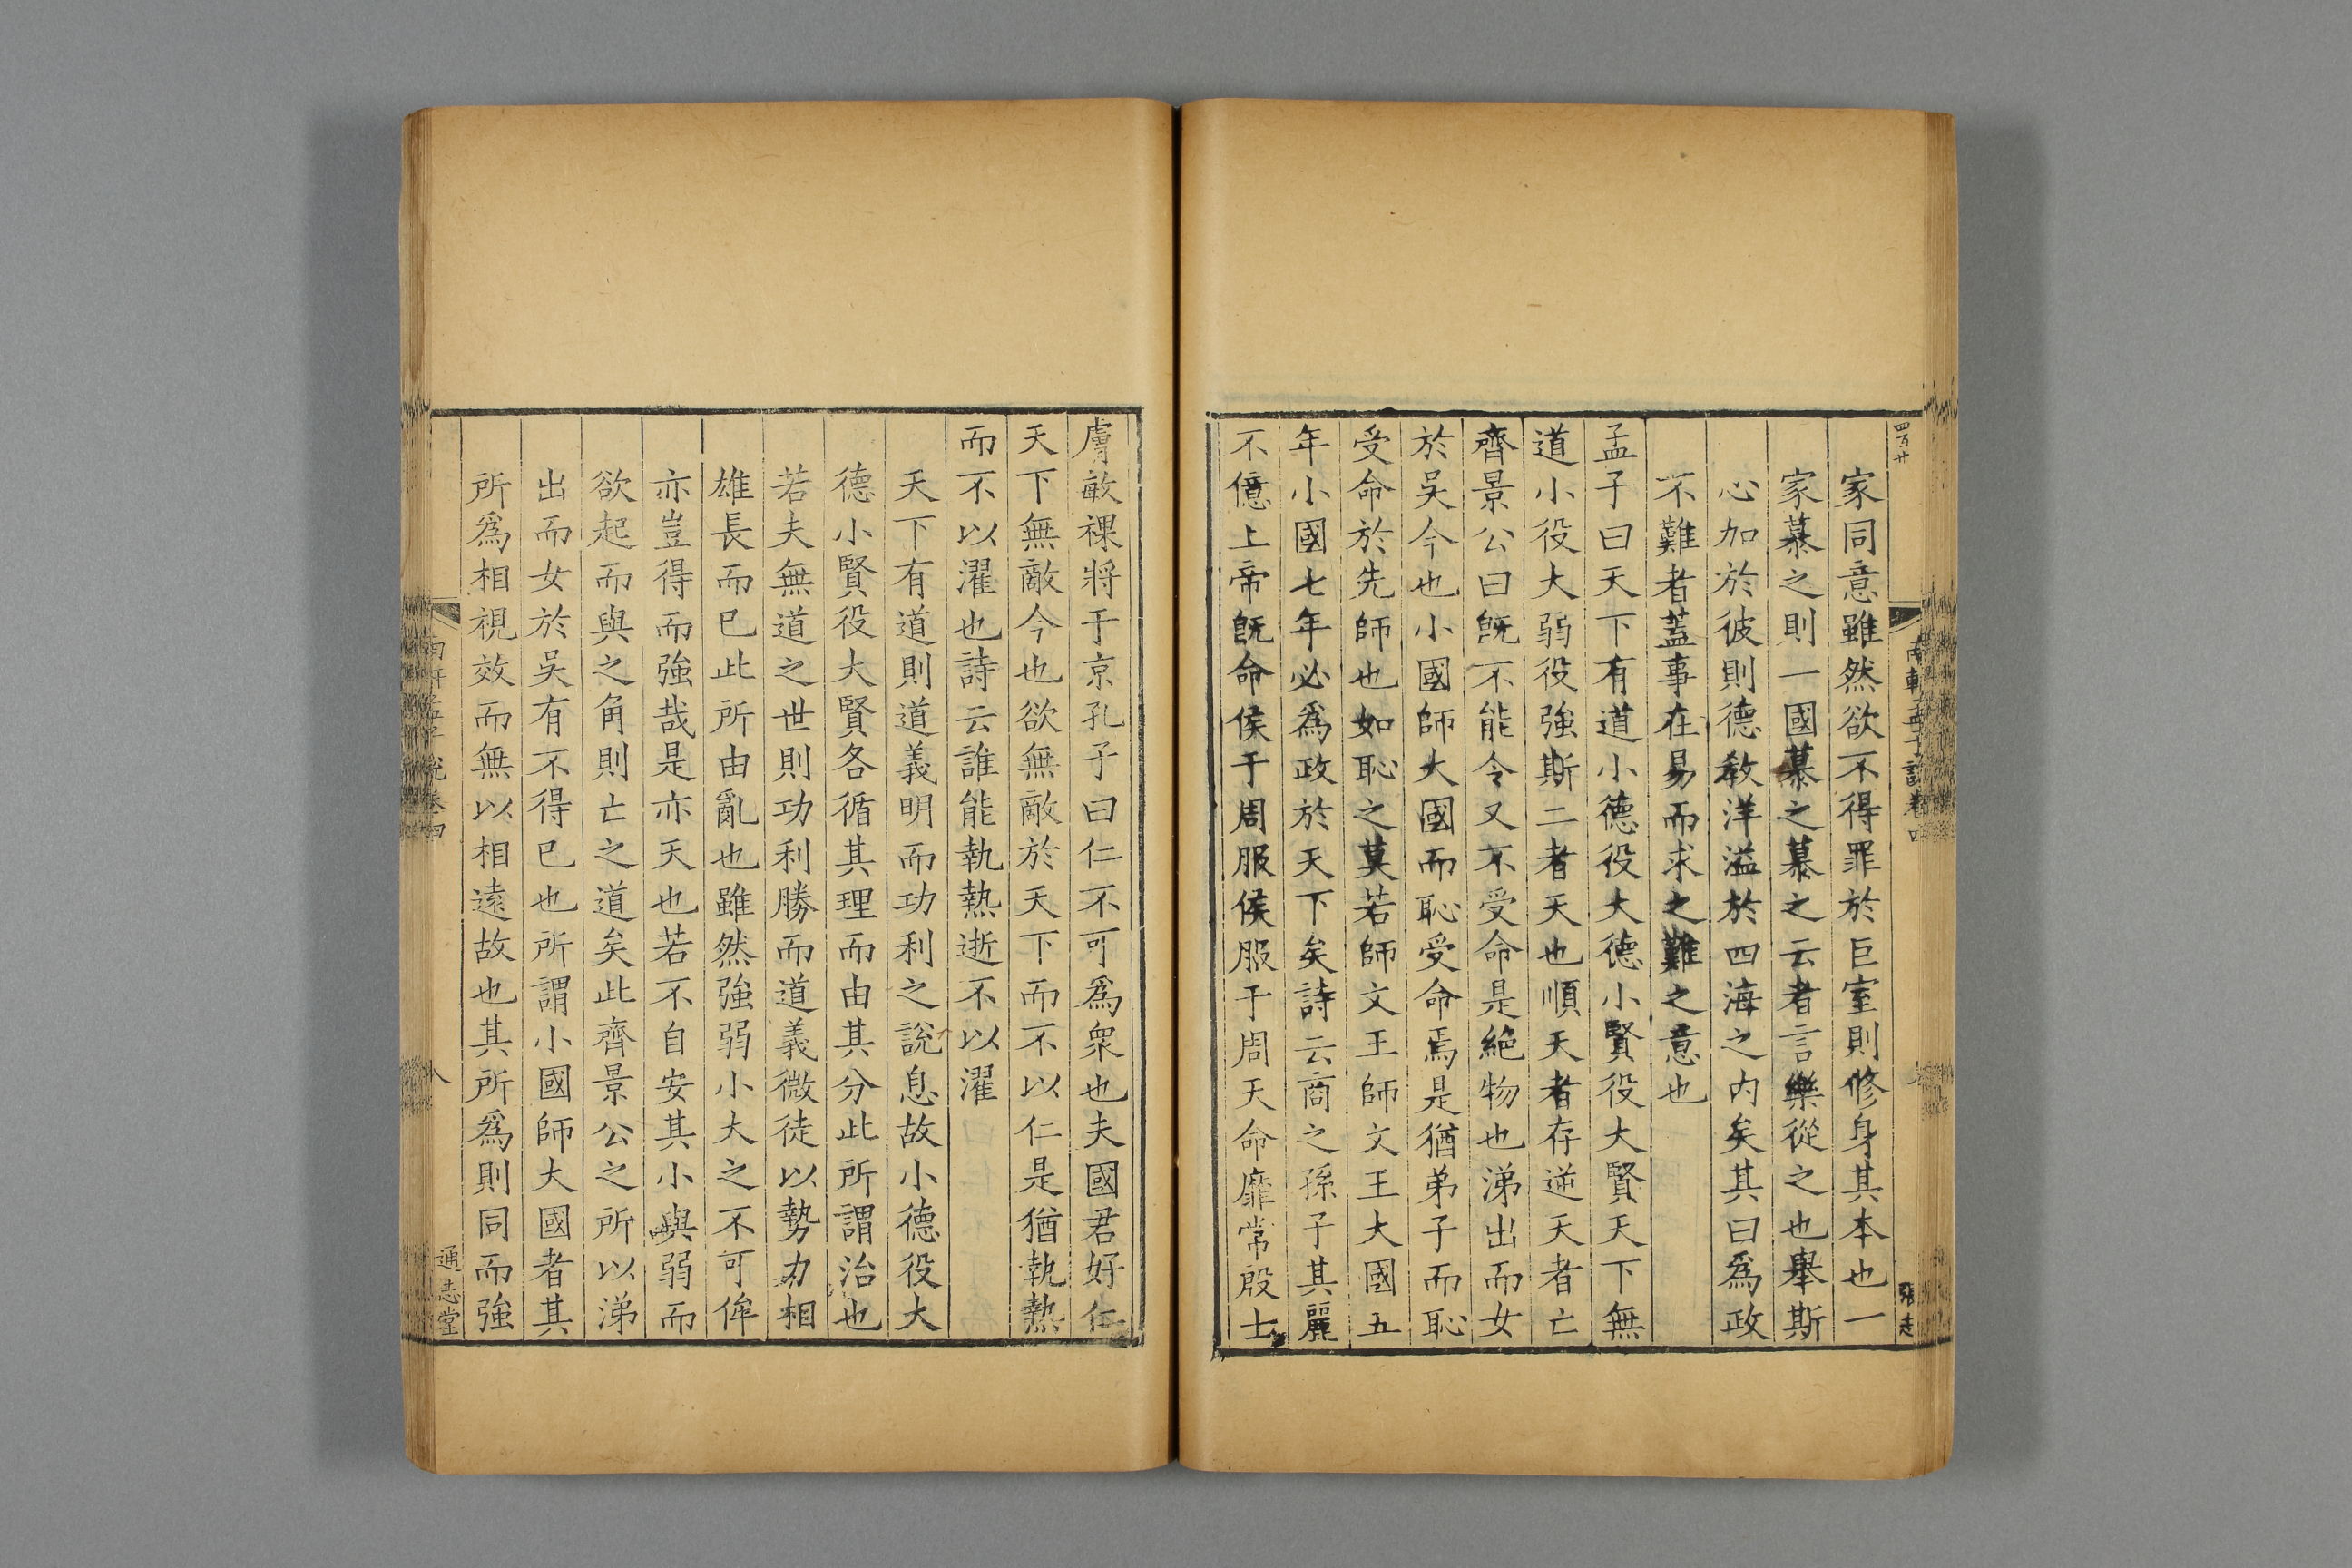 四百廿
南軒孟子說卷四
家同意雖然欲不得罪於巨室則修身其本也一
家慕之則一國慕之慕之云者言樂從之也舉斯
心加於彼則德敎洋溢於四海之內矣其曰爲政
不難者蓋事在易而求之難之意也
孟子曰天下有道小德役大德小賢役大賢天下無
道小役大弱役強斯二者天也順天者存逆天者亡
齊景公曰旣不能令又不受命是絕物也涕出而女
於吳今也小國師大國而恥受命焉是猶弟子而恥
受命於先師也如恥之莫若師文王師文王大國五
年小國七年必爲政於天下矣詩云商之孫子其麗
不億上帝旣命侯于周服侯服于周天命靡常殷士
膚敏祼將于京孔子曰仁不可爲衆也夫國君好仁
天下無敵今也欲無敵於天下而不以仁是猶執熱
而不以濯也詩云誰能執熱逝不以濯
天下有道則道義明而功利之說息故小德役大
德小賢役大賢各循其理而由其分此所謂治也
若夫無道之世則功利勝而道義微徒以勢力相
雄長而已此所由亂也雖然強弱小大之不可侔
亦豈得而強哉是亦天也若不自安其小與弱而
欲起而與之角則亡之道矣此齊景公之所以涕
出而女於吳有不得已也所謂小國師大國者其
所爲相視效而無以相遠故也其所爲則同而強
南軒孟子說卷四
八
通志堂